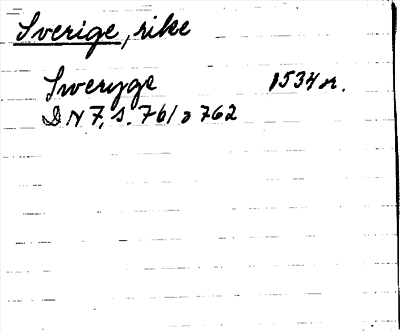 Sverige, rike
Sweryge 1534 or.
DN 7, s. 761 o 762